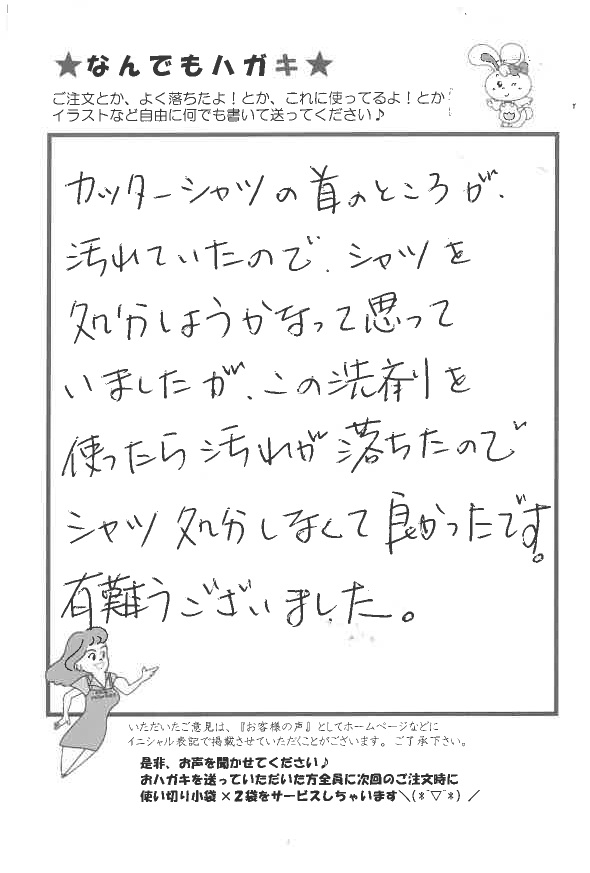 ★なんでもハガキ★
ご注文とか、よく落ちたよ！とか、これに使ってるよ！とか
イラストなど自由に何でも書いて送ってください♪
カッターシャツの首のところが、
汚れていたので、シャツを
処分しようかなって思って
いましたが、この洗剤を
使ったら汚れが落ちたので
シャツ処分しなくて良かったです。
有難うございました。
いただいたご意見は、『お客様の声』としてホームページなどに
イニシャル表記で掲載させていただくことがございます。ご了承下さい。
是非、お声を聞かせてください♪
おハガキを送っていただいた方全員に次回のご注文時に
使い切り小袋×２袋をサービスしちゃいます＼(*¨▽¨*)／